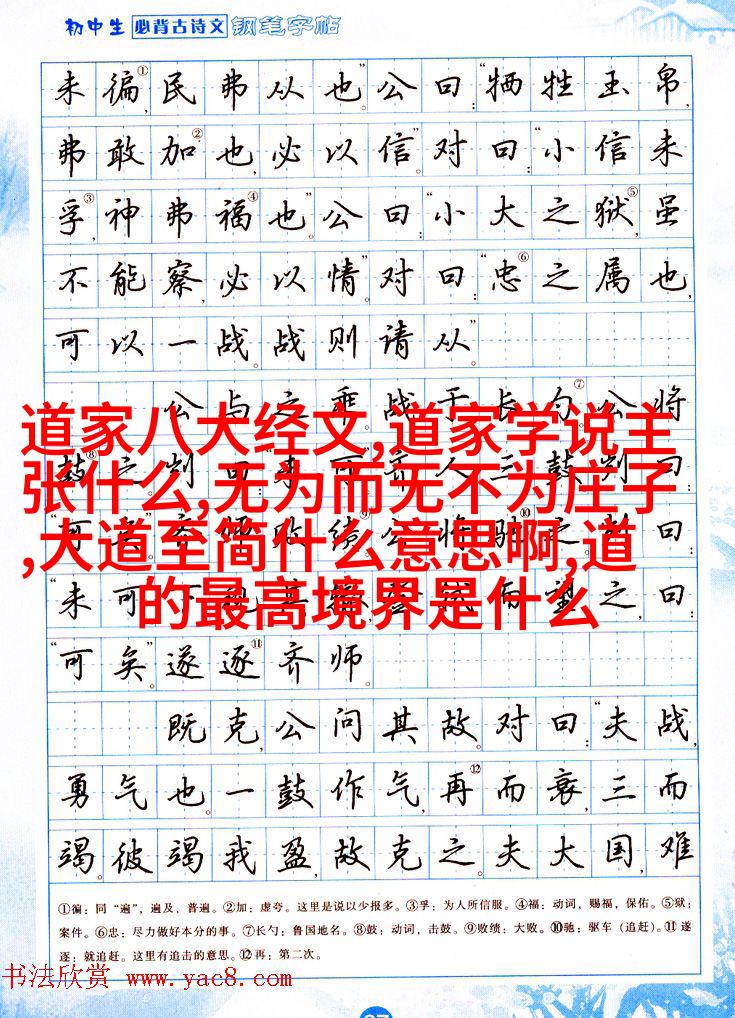 初中生 必背古诗文 钢笔字帖
未徧①,民弗从也”。公曰:“牺牲玉帛,
弗敢加②也,必以信”。对曰:“小信未
孚③,神弗福④也”。公曰:“小大之狱⑤,虽
不能察,必以情”。对曰:“忠⑥之属也,
可以一战。战则请从”。
公与之乘。战于长勺⑦。公将
道家八大经文,道家学说主
张什么,无为而无不为庄子
,大道至简什么意思啊,道
的最高境界是什么
“可矣”。遂逐⑪齐师。
既克,公问其故。对曰:“夫战,
勇气也。一鼓作气,再⑫而衰,三而
竭。彼竭我盈,故克之。夫大国,难
①徧:同“遍”,遍及,普遍。②加:虚夸。这里是说以少报多。③孚:为人所信服。④福:动词,赐福,保佑。⑤狱:
案件。⑥忠:尽力做好本分的事。⑦长勺:鲁国地名。⑧鼓:动词,击鼓。⑨败绩:大败。⑩驰:驱车(追赶)。⑪遂
逐:就追赶。这里有追击的意思。⑫再:第二次。
书法欣赏 www.yac8.com